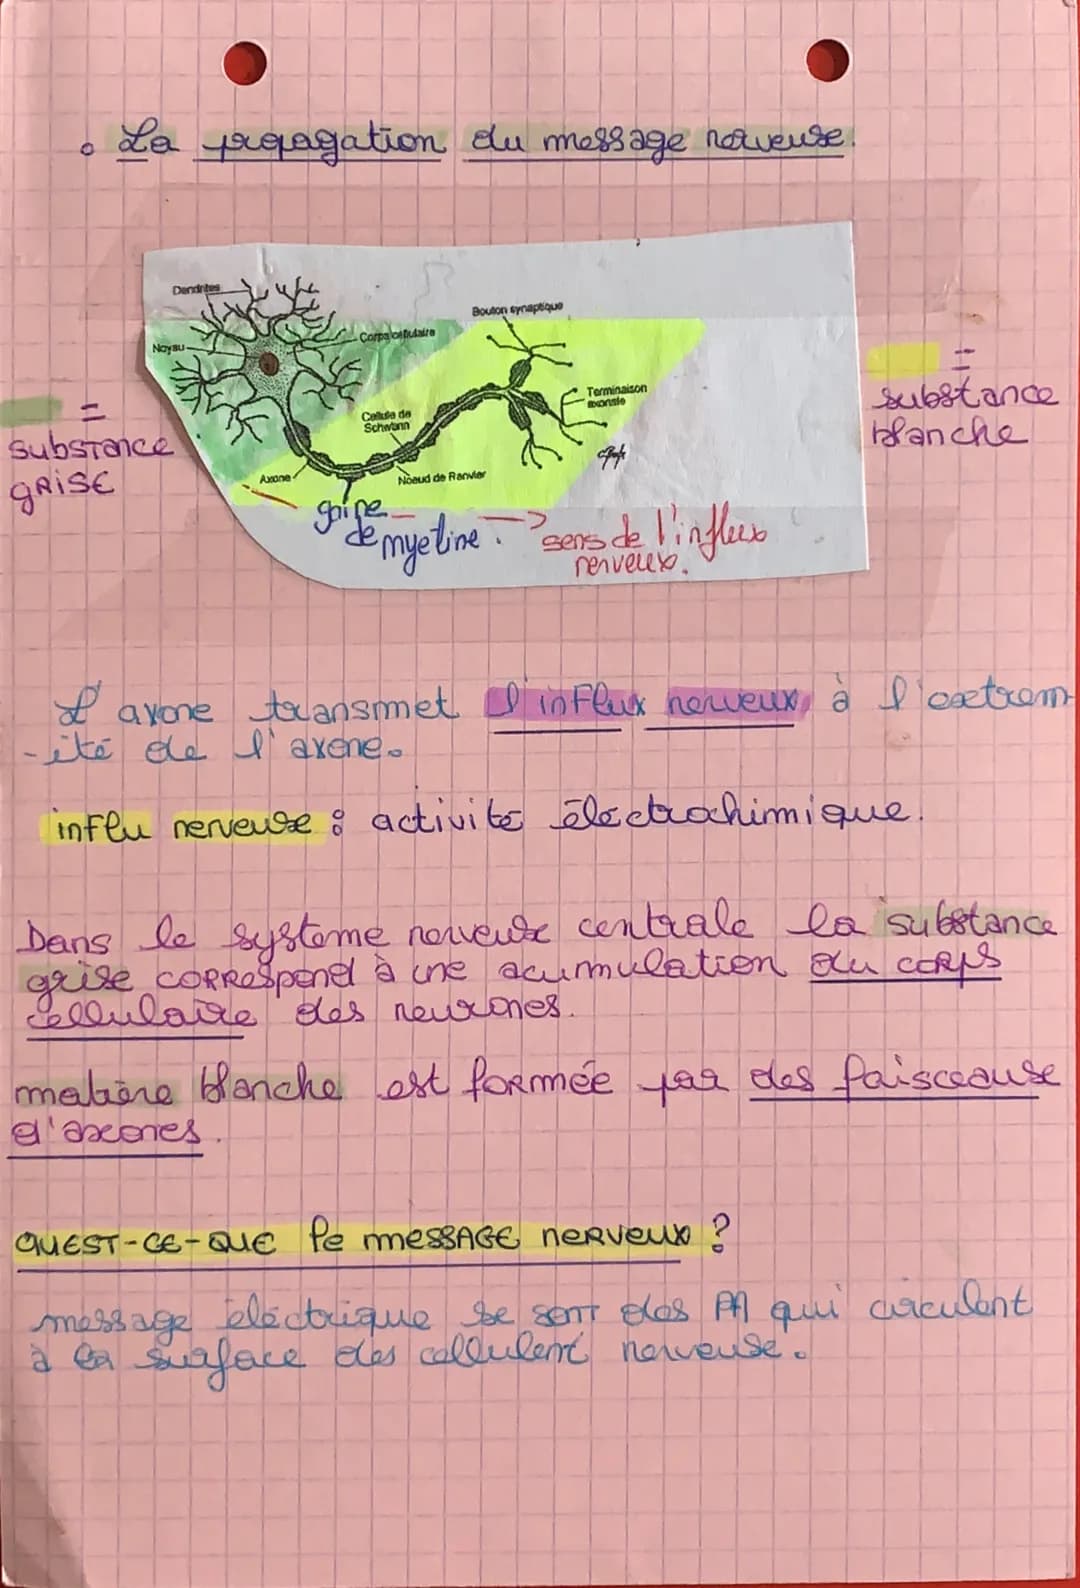 La propagation du message nerveuse.
Dendrites
Bouton synaptique
Corps cellulaire
Noyau
Terminaison
axonale
Cellule de
Schwann
Axone
Noeud de Ranvier
=
substance
GRISE
=
substance
blanche
gaine
de myeline.
→ sens de l'influx
nerveux.
L'axone transmet l'influx nerveux, à l'extrem-
-ité de l'axone.
influ nerveuse : activité électrochimique.
Dans le systeme nerveux centrale la substance
grise correspond à une acumulation du corps
cellulaire des neurones.
matière blanche est formée par des faisceause
d'axones.
QUEST-CE-QUE le MESSAGE NERVEUX ?
message électrique se sont des PA qui circulent
à la surface des cellulent nerveuse.